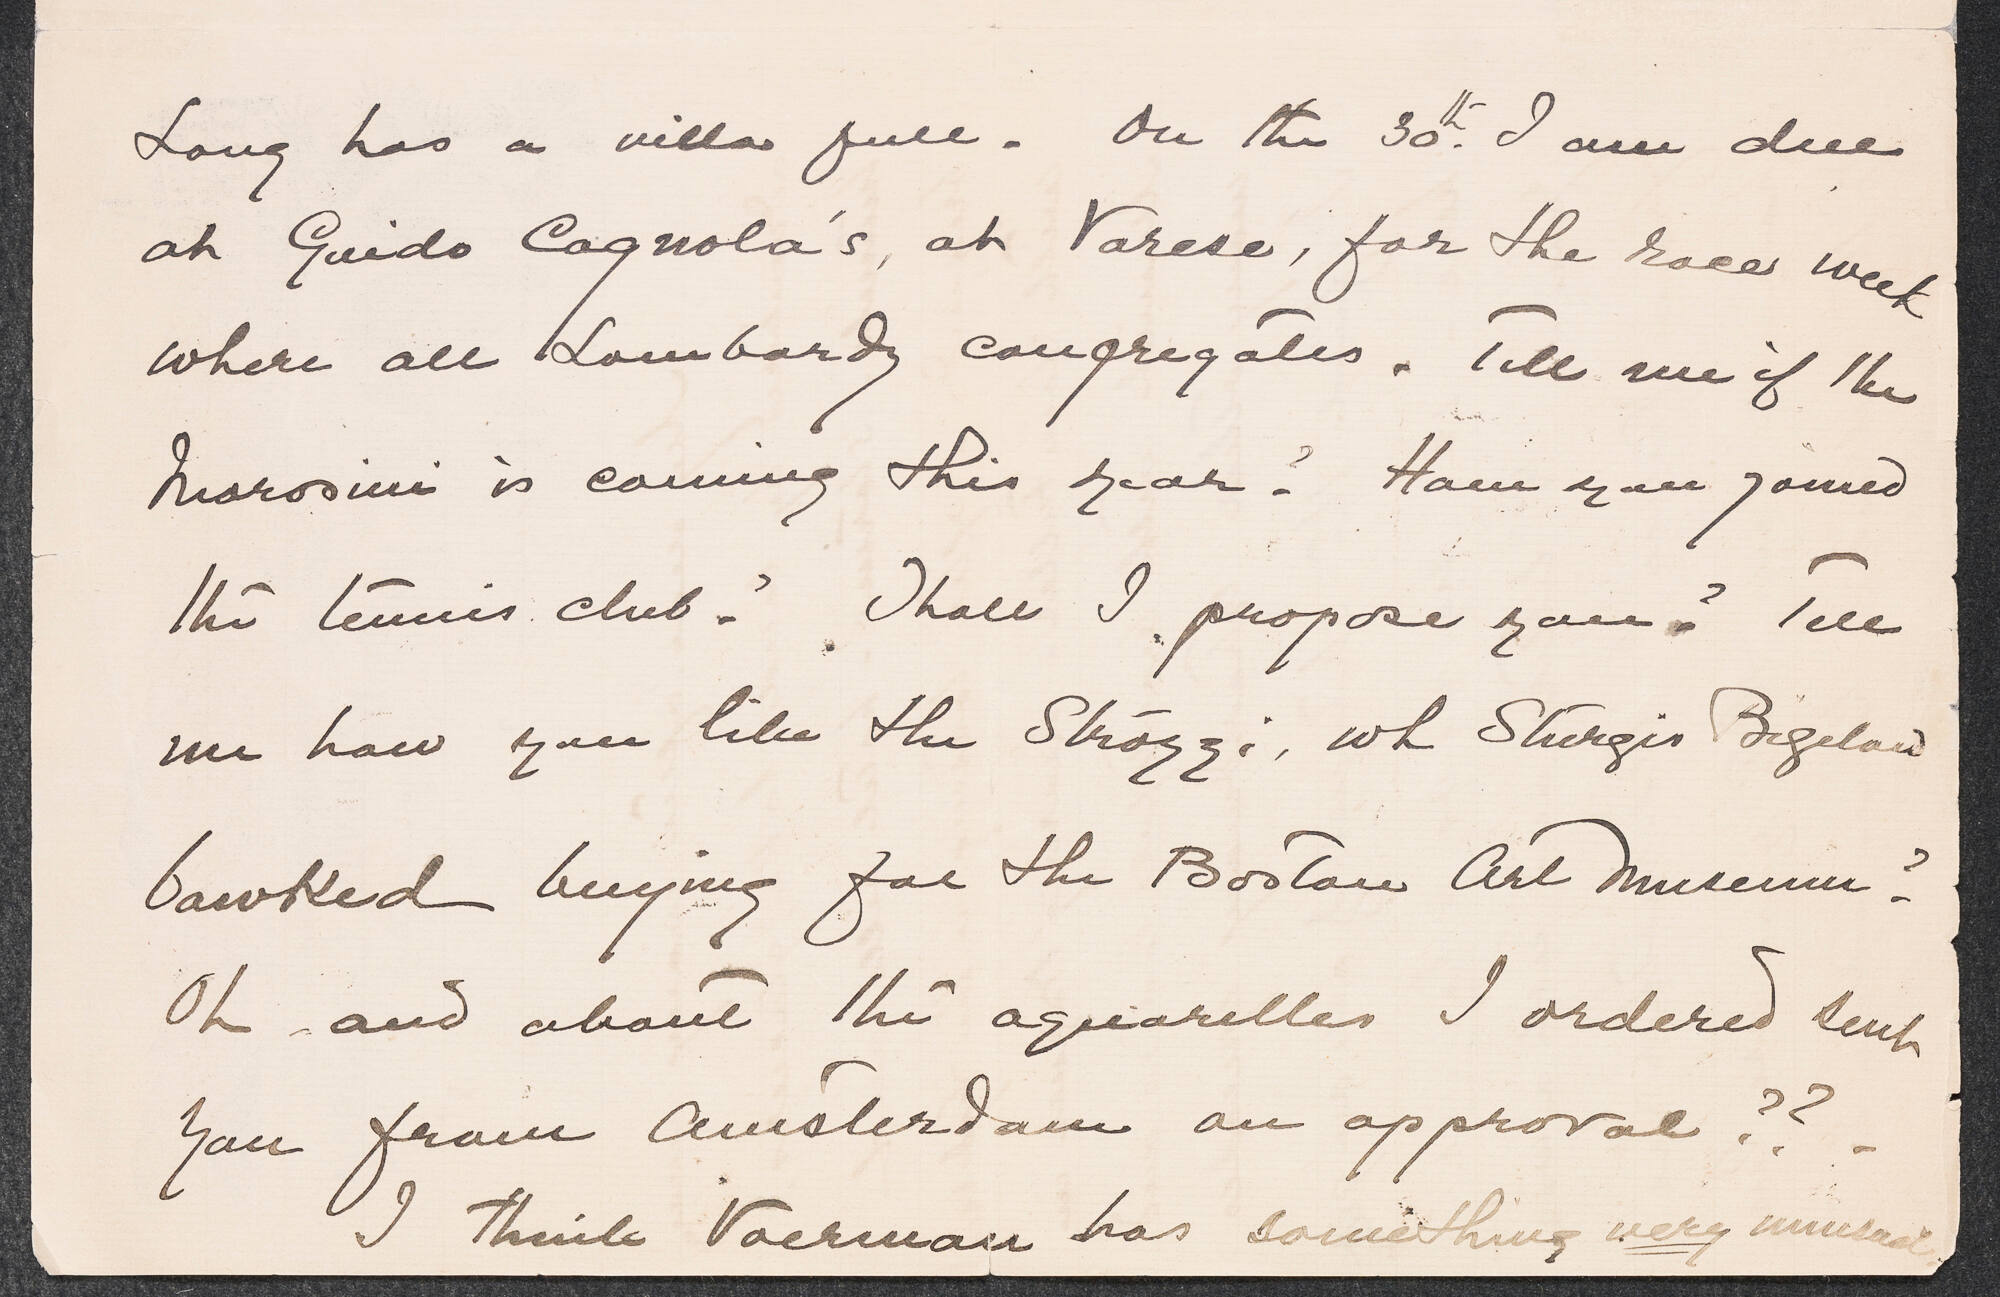 Long has a villa full. On the 30th. I am due
at Guido Cagnola's, at Varese, for the races week
where all Lombardy congregates. Tell me if the
Morosini is coming this year? Have you joined
the tennis club? Shall I propose you? Tell
me how you like the Strozzi, wh Sturgis Bigelow
bawked buying for the Boston Art Museum?
Oh and about the aquarelles I ordered sent
you from Amsterdam on approval??.
I think Voerman has something very unusual